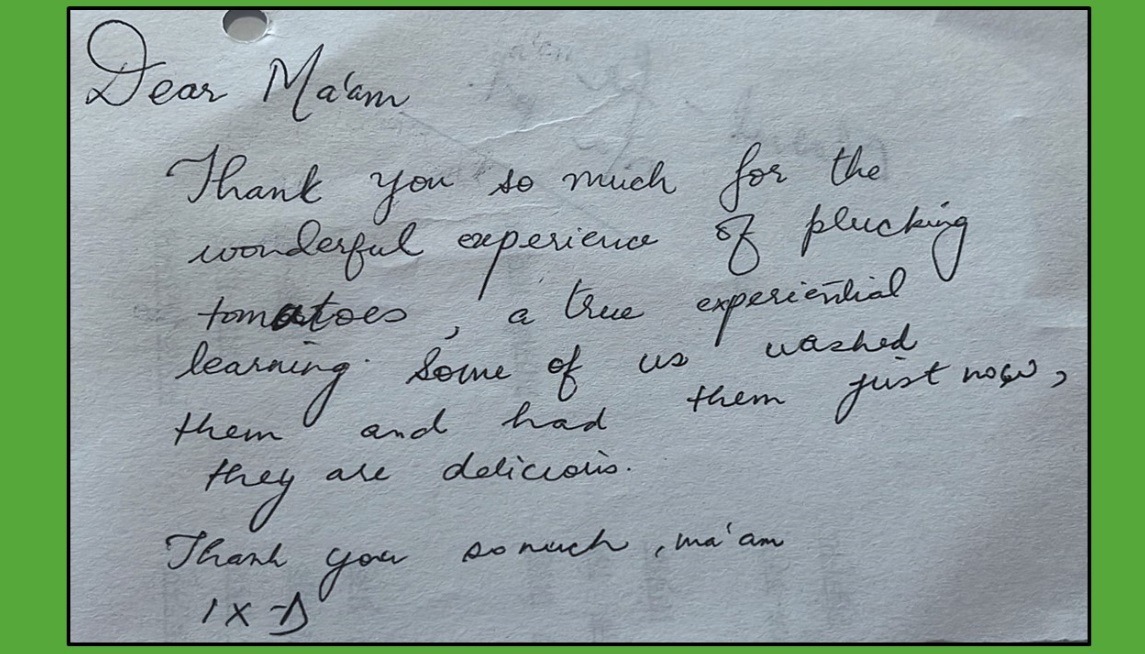 Dear Ma'am
Thank you so much for the
wonderful experience of plucking
tomatoes, a true experiential
learning. Some of us washed
them and had them just now,
they are delicious.
Thank you so much, ma'am
IX-D